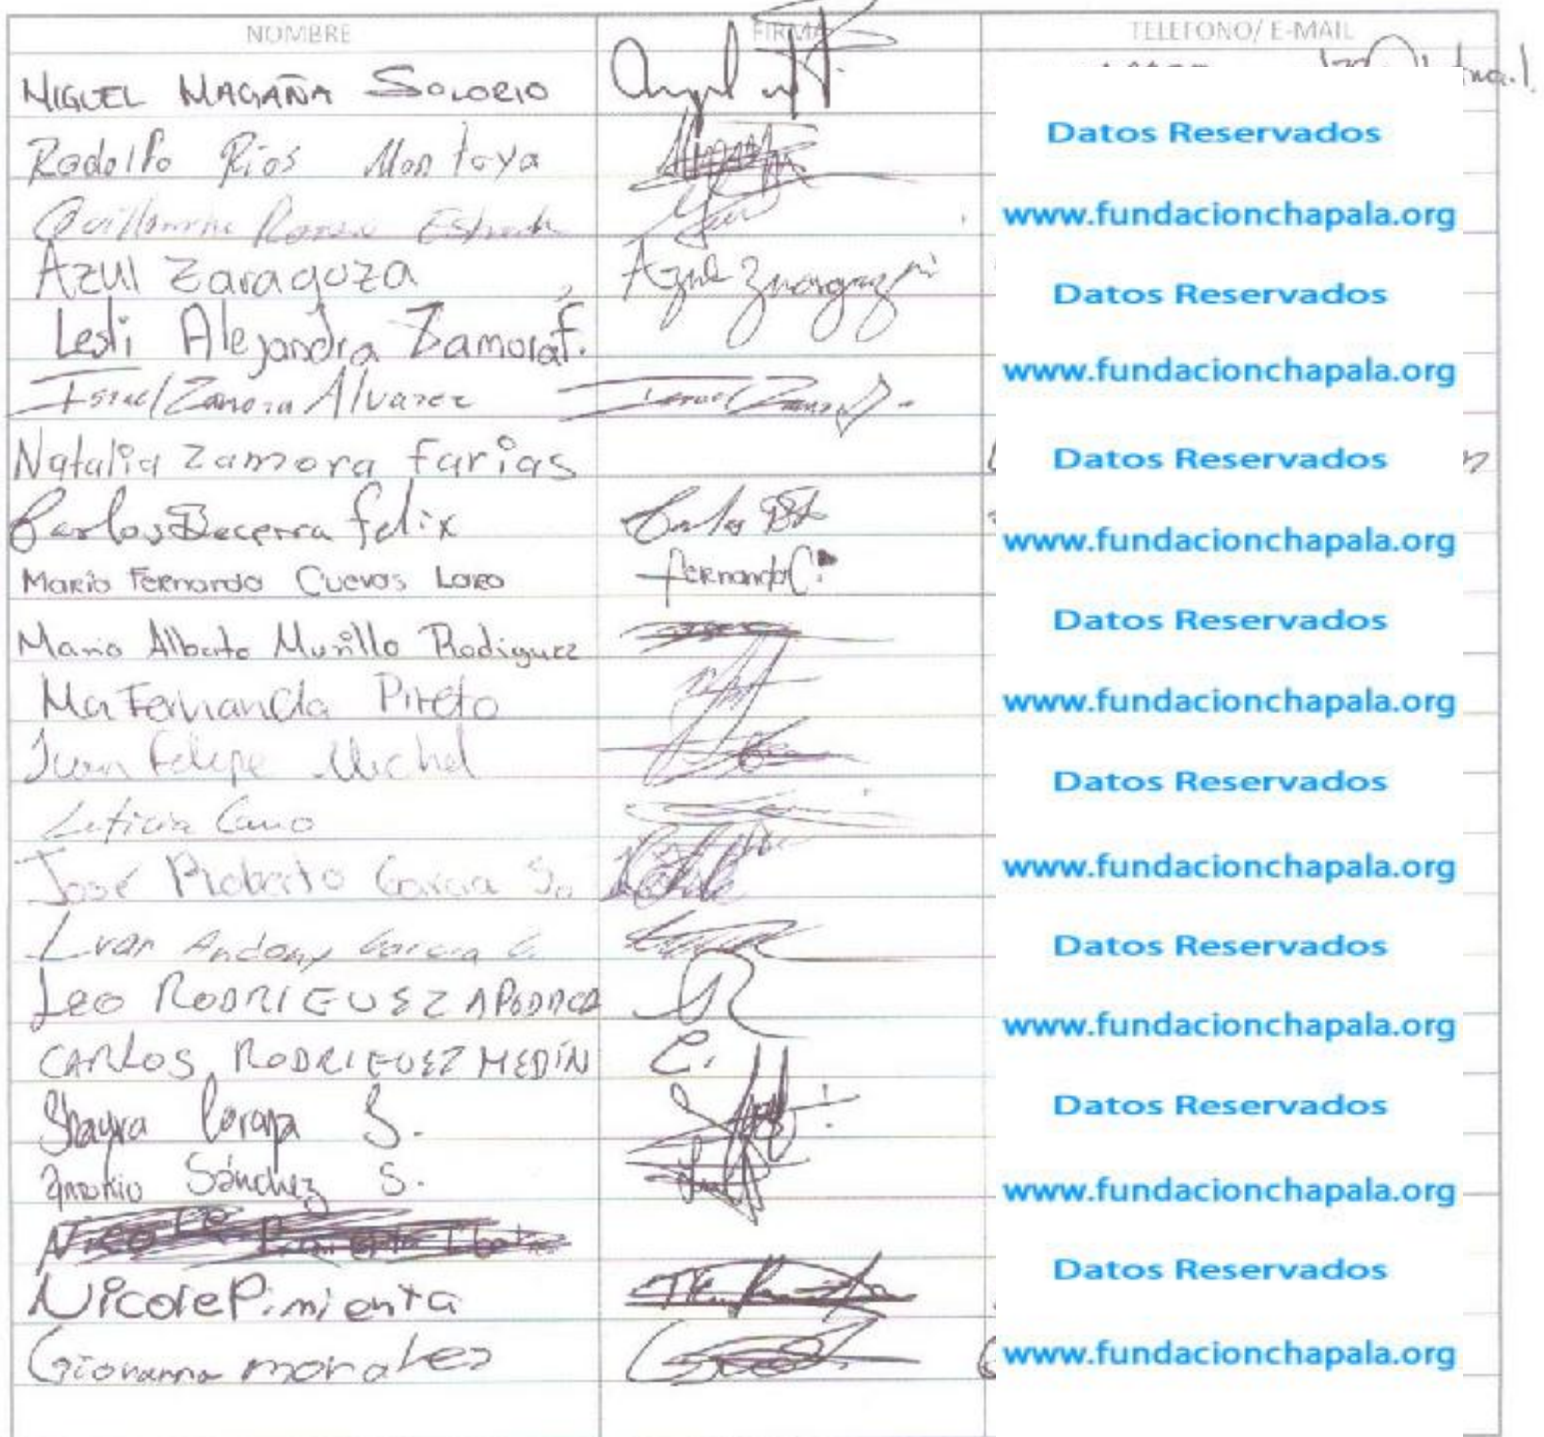 NOMBRE FIRMA TELEFONO/ E-MAIL
MIGUEL MAGAÑA SOLORIO Angel
Datos Reservados
Rodolfo Rios Montoya
www.fundacionchapala.org
Guillermo Estrada
Azul Zaragoza Azul Zaragoza
Datos Reservados
Lesli Alejandra Zamora F.
www.fundacionchapala.org
Israel Zamora Alvarez Israel Zamora
Natalia Zamora Farias Datos Reservados
Carlos Becerra felix Carlos
www.fundacionchapala.org
Mario Fernando Cuevas Lara fernando C.
Datos Reservados
Mario Alberto Murillo Rodriguez
Ma Fernanda Prieto www.fundacionchapala.org
Juan Felipe Michel
Datos Reservados
Leticia Cano
José Roberto Garcia www.fundacionchapala.org
Ivan Andony Garcia G. Datos Reservados
LEO RODRIGUEZ APODACA
www.fundacionchapala.org
CARLOS RODRIGUEZ MEDIN C.
Shayra S. Datos Reservados
Antonio Sánchez S.
www.fundacionchapala.org
Datos Reservados
Nicole Pimienta
Giovanna morales www.fundacionchapala.org